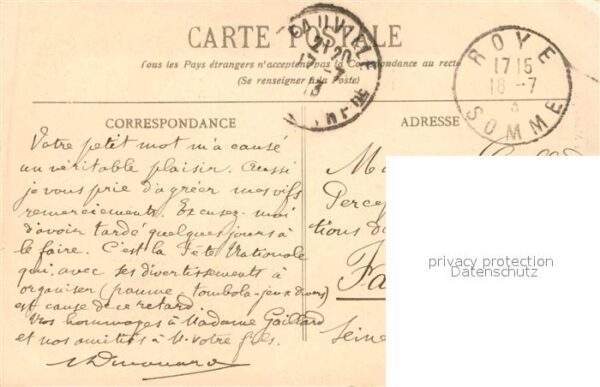 CARTE POSTALE
Tous les Pays étrangers n'acceptent pas la Correspondance au recto
(Se renseigner à la Poste)
FAUVILLE
21 20
ROYE
17 15
16 -7
SOMME
CORRESPONDANCE
ADRESSE
Votre petit mot m'a causé
un véritable plaisir. Aussi
je vous prie d'agréer mes vifs
remerciements. Excusez-moi
d'avoir tardé quelques jours à
le faire. C'est la Fête Nationale
qui, avec ses divertissements à
organiser (paume, tombola - jeux divers)
est cause de ce retard.
Mes hommages à Madame Gaillard
et nos amitiés à M. votre fils.
Ma
Percep
tions d
Fa
Seine
privacy protection
Datenschutz